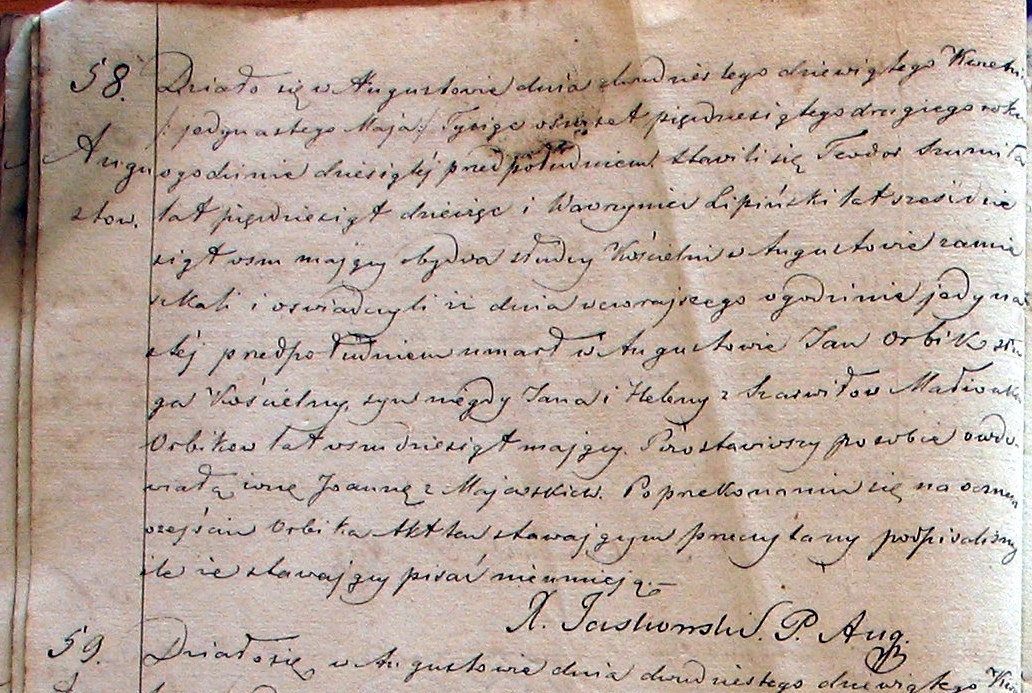 58. Działo się w Augustowie dnia dwudziestego dziewiątego Kwietnia
Augu
stow.
/: jedynastego Maja :/ Tysiąc ośmset pięćdziesiątego drugiego roku
o godzinie dziesiątéj przed południem. Stawili się Teodor Szumiła
lat pięśdziesiąt dziewięc i Wawrzyniec Lipiński lat sześćdzie
siąt osm mający obydwa słudzy Kościelni w Augustowie zamie
szkali i oswiadczyli iż dnia wczorajszego o godzinie jedyna
stéj przedpołudniem umarł w Augustowie Jan Orbik słu
ga Kościelny, syn niegdy Jana i Heleny z Małżonków
Orbikow lat osmdziesiąt mający. Pozostawiwszy po sobie owdo
wiałą żonę Joannę z Majewskich. Po przekonaniu się na oczném
zejściu Orbika Akt ten stawającym przeczytany podpisaliśmy
ile że stawający pisać nieumieją.
X. Jaskowski. P. Aug.
59. Działo się w Augustowie dnia dwudziestego dziewiątego